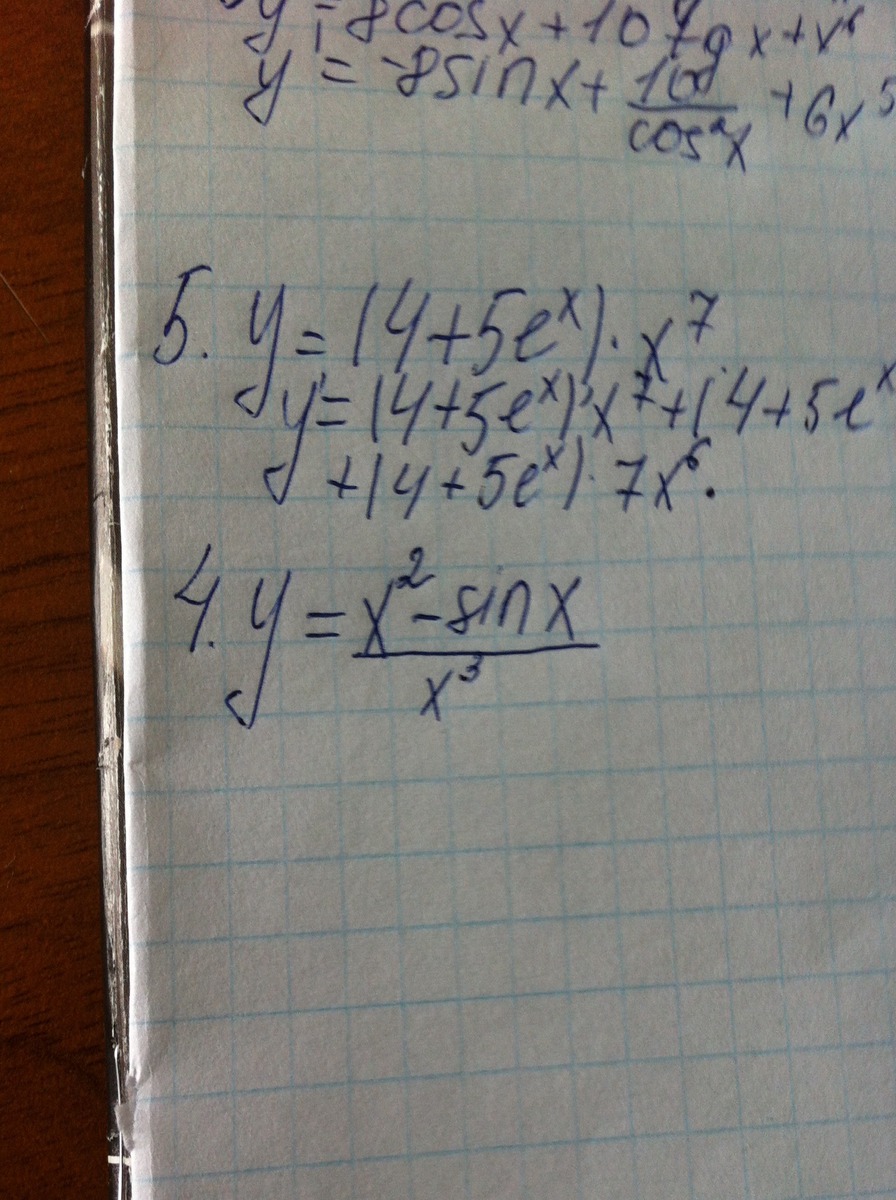 y = 8cosx + 10tgx + x⁶
y' = -8sinx + 10/cos²x + 6x⁵
5. y = (4+5eˣ)·x⁷
y' = (4+5eˣ)'x⁷+(4+5eˣ
+(4+5eˣ)·7x⁶.
4. y = x²-sinx/x³